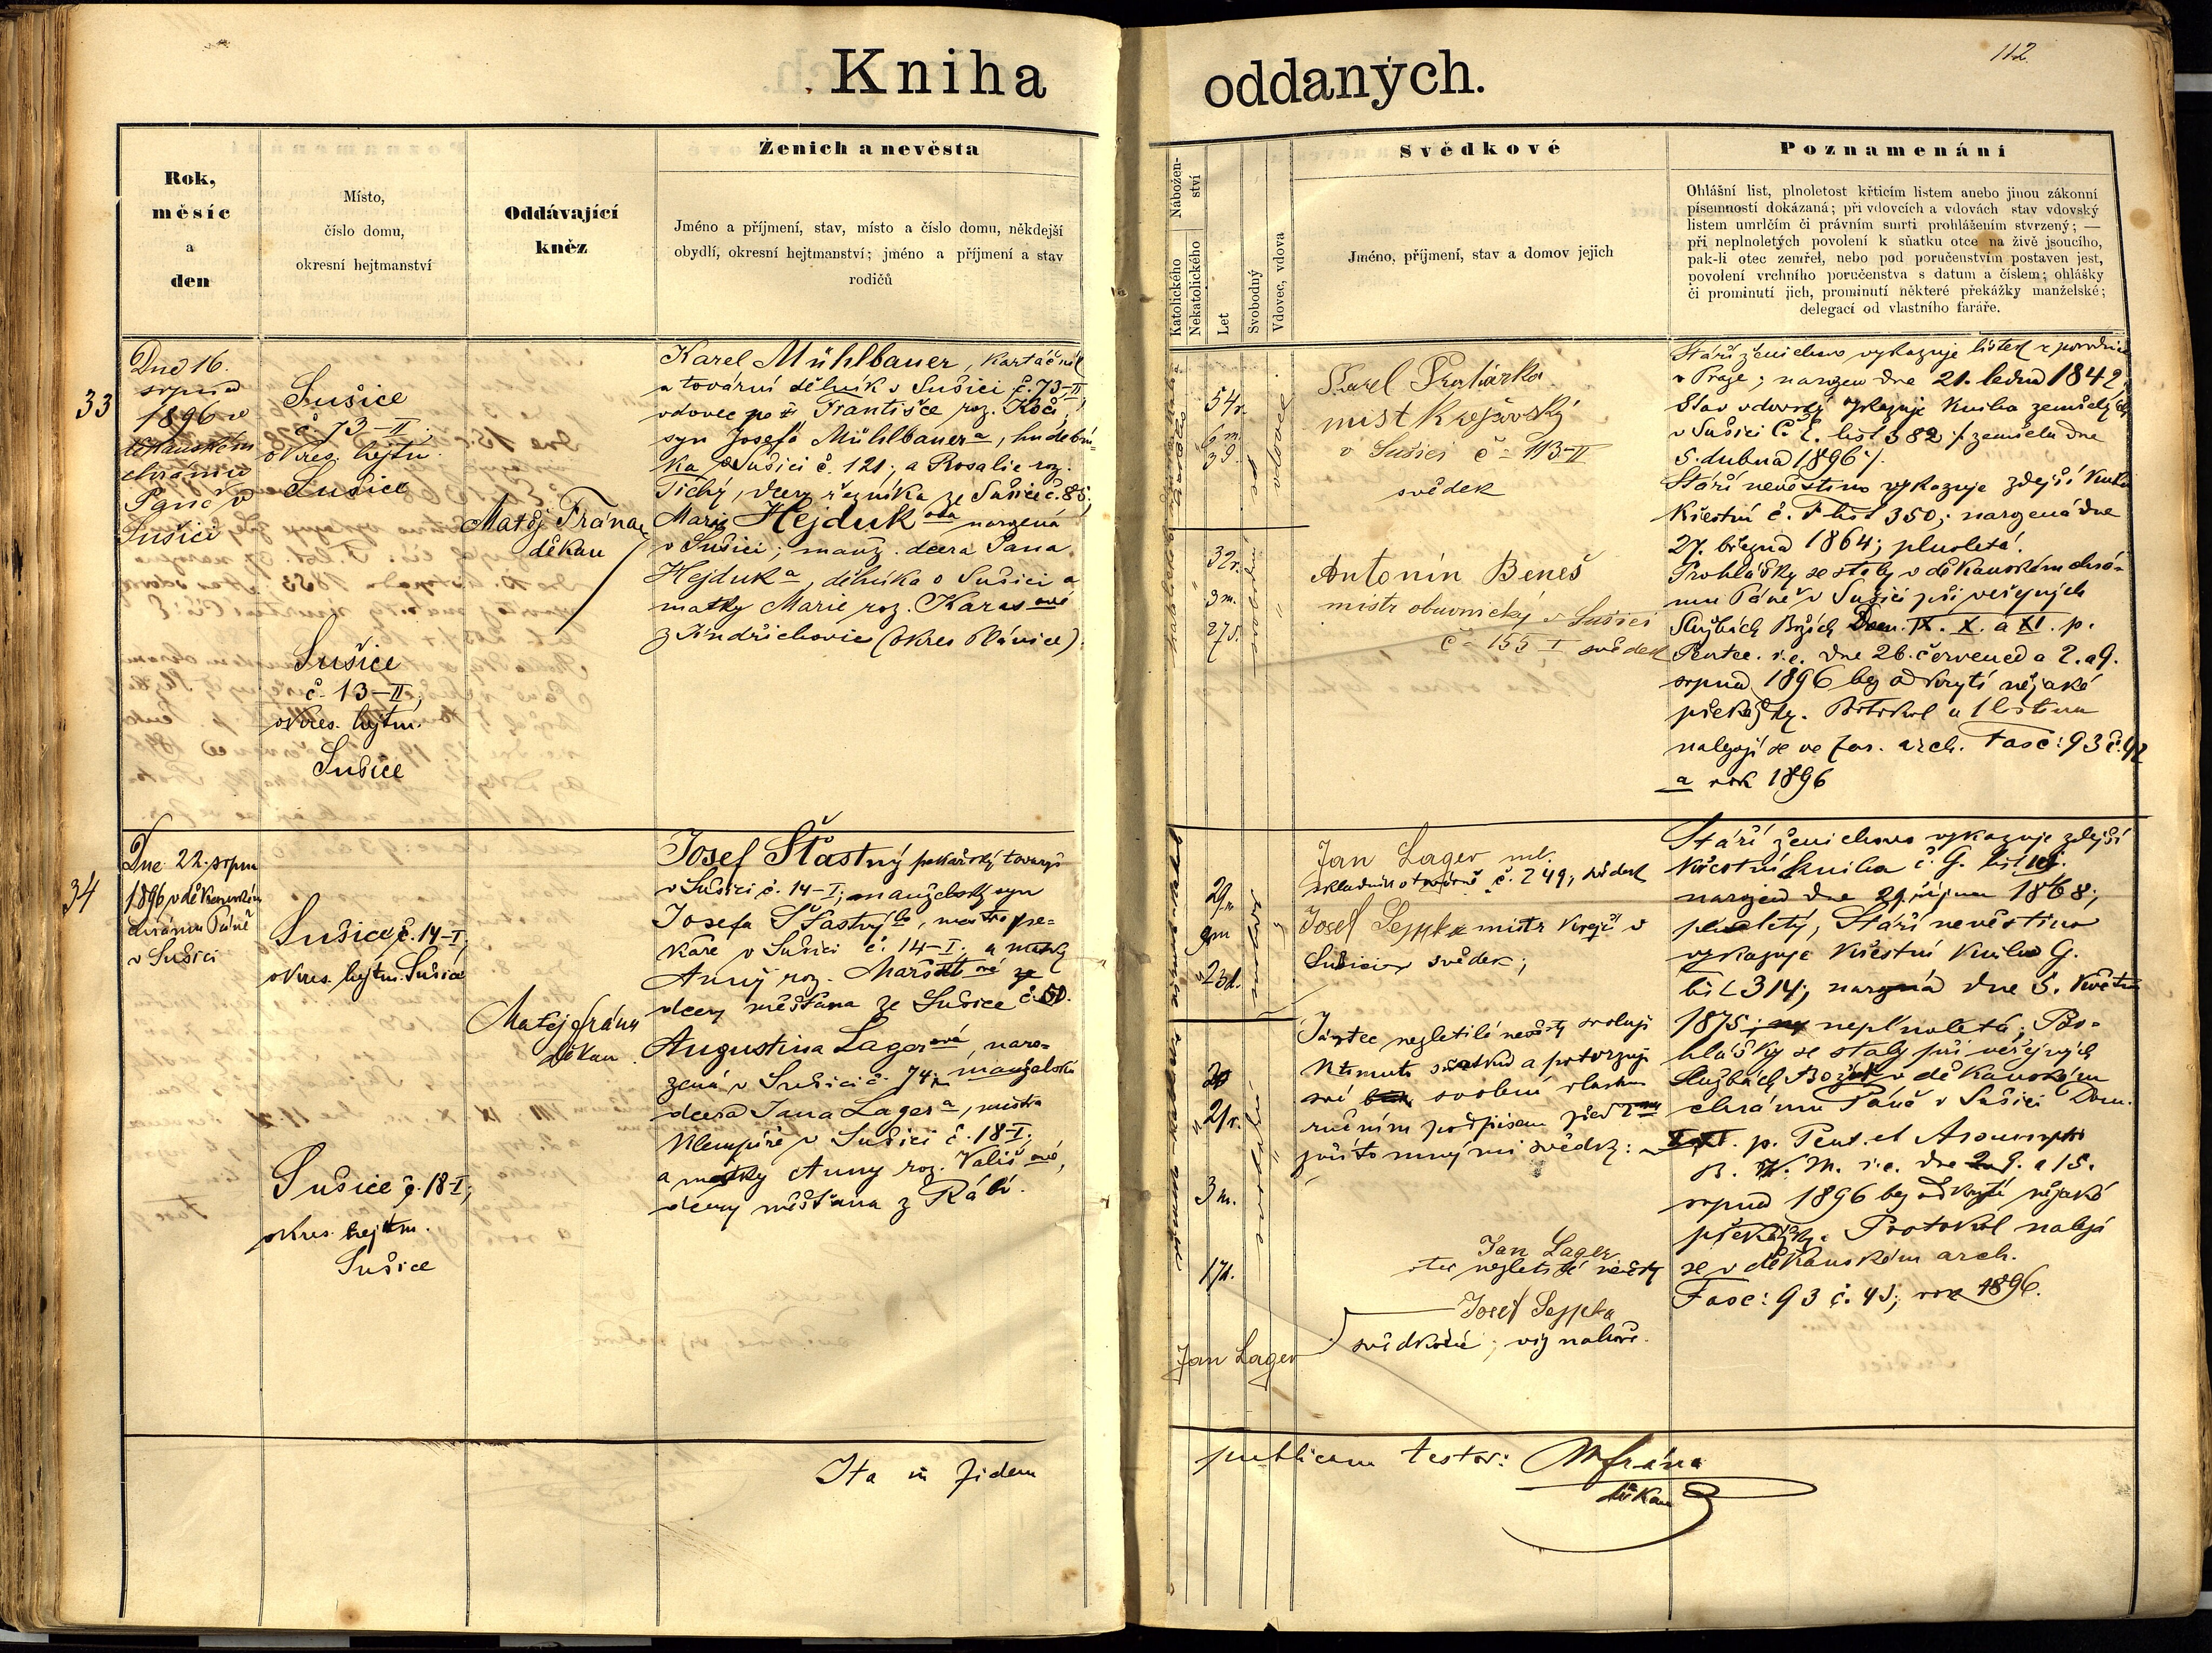 Kniha oddaných.
112
Rok,
měsíc
a
den
Místo,
číslo domu,
okresní hejtmanství
Oddávající
kněz
Ženich a nevěsta
Jméno a příjmení, stav, místo a číslo domu, někdejší
obydlí, okresní hejtmanství; jméno a příjmení a stav
rodičů
Nábožen-
ství
Katolického
Nekatolického
Let
Svobodný
Vdovec, vdova
Svědkové
Jméno, příjmení, stav a domov jejich
Poznamenání
Ohlášní list, plnoletost křticím listem anebo jinou zákonní
písemností dokázaná; při vdovcích a vdovách stav vdovský
listem umrlčím či právním smrti prohlášením stvrzený; —
při neplnoletých povolení k sňatku otce na živě jsoucího,
pak-li otec zemřel, nebo pod poručenstvím postaven jest,
povolení vrchního poručenstva s datum a číslem; ohlášky
či prominutí jich, prominutí některé překážky manželské;
delegací od vlastního faráře.
33
Dne 16.
srpna
1896 v
děkanském
chrámu
Páně v
Sušici
Sušice
č 73-II.
okres. hejtm.
Sušice
Sušice
č. 13-II,
okres. hejtm.
Sušice
Matěj Frána
děkan
Karel Mühlbauer, kartáčník
a tovární dělník v Sušici č. 73-II,
vdovec po Františce roz. Kočí,
syn Josefa Mühlbauera, hudební-
ka v Sušici č. 121; a Rosalie roz.
Tichý, dcery řezníka ze Sušice č. 85;
Marie Hejduková narozená
v Sušici; manž. dcera Jana
Hejduka, dělníka v Sušici a
matky Marie roz. Karasové
z Jindřichovic (okres Plánice).
54 r.
6 m.
vdovec
32 r.
3 m.
svobodná
Karel
mistr krejčovský
v Sušici č 113-II
svědek
Antonín Beneš
mistr obuvnický v Sušici
č 155 I svědek
Stáří ženichovo vykazuje lístek z porodnice
v Praze; narozen dne 21. ledna 1842.
Stav vdovský vykazuje kniha zemřelých
v Sušici č. E. list 382 /: zemřela dne
5. dubna 1896 :/.
Stáří nevěstino vykazuje zdejší kniha
křestní č. F list 350; narozená dne
27. března 1864; plnoletá.
Prohlášky se staly v děkanském chrá-
mu Páně v Sušici při veřejných
službách Božích Dom. IX. X. a XI. p.
Pentec. i.e. dne 26. července a 2. a 9.
srpna 1896 bez odkrytí nějaké
překážky. Protokol a 1 listina
nalezají se ve far. arch. Fasc: 93 č. 42
a rok 1896
34
Dne 22. srpna
1896 v děkanském
chrámu Páně
v Sušici
Sušice č. 14-I,
okres. hejtm. Sušice
Sušice č. 18-I;
okres. hejtm.
Sušice
Matěj Frána
děkan
Josef Šťastný pekařský tovaryš
v Sušici č. 14-I; manželský syn
Josefa Šťastného, mistra pe-
kaře v Sušici č. 14-I; a matky
Anny roz.
dcery měšťana ze Sušice
Augustina Lagerová, naro-
zená v Sušici č. 74; manželská
dcera Jana Lagera, mistra
klempíře v Sušici č. 18-I;
a matky Anny roz. Vališové,
dcery měšťana z Rábí.
svobodný
23 d.
21 r.
3 m.
17 d.
svobodná
Jan Lager ml.
č. 249, svědek
Josef Seppka mistr krejčí v
Sušici svědek;
Já otec nezletilé nevěsty svoluji
k tomuto sňatku a potvrzuji
své svolení vlastno
ručním podpisem před 2ma
přítomnými svědky:
Jan Lager
otec nezletilé nevěsty
Josef Seppka
svědkové; viz nahoře.
Jan Lager
Stáří ženichovo vykazuje zdejší
křestní kniha č. G. list
narozen dne 29. října 1868;
plnoletý, Stáří nevěstino
vykazuje křestní kniha G.
list 314; narozená dne 5. května
1875; neplnoletá; Pro-
hlášky se staly při veřejných
službách Božích v děkanském
chrámu Páně v Sušici Dom.
p. Pent. et Assumpt.
B. V. M. i.e. dne 2. 9. a 15.
srpna 1896 bez odkrytí nějaké
překážky. Protokol nalezá
se v děkanském arch.
Fasc: 93 č. 43; rok 1896.
Ita in fidem publicam testor: M Frána
děkan